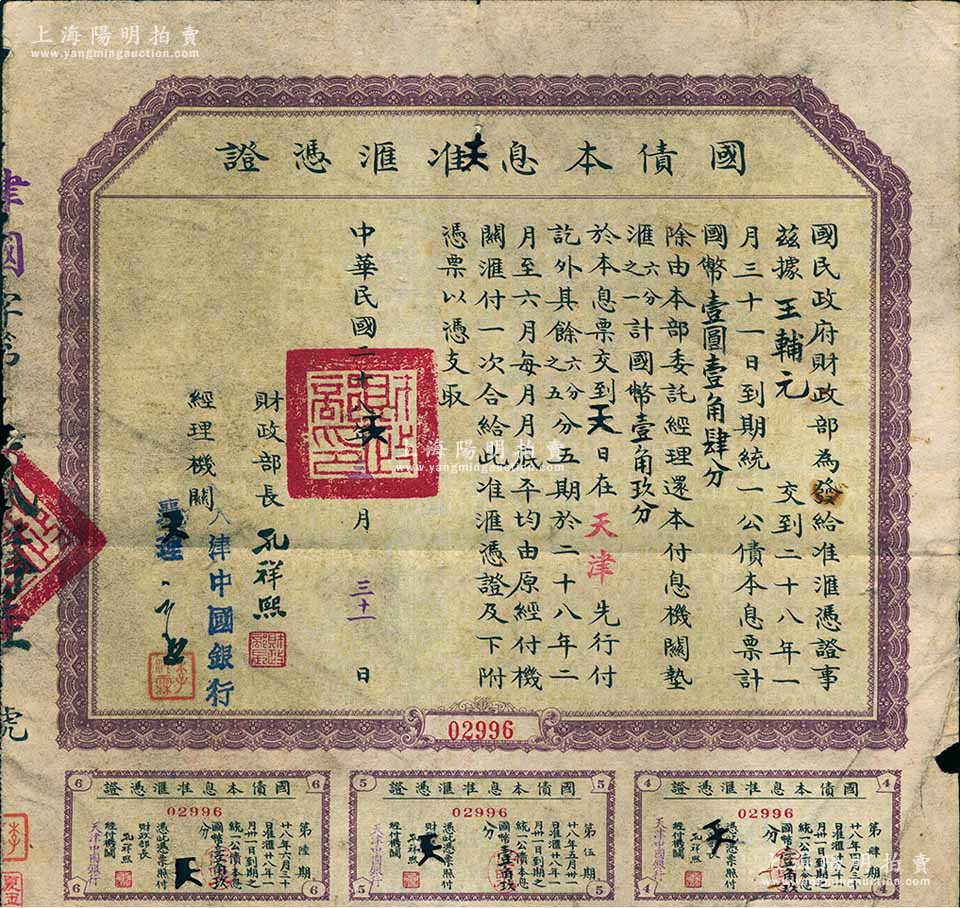 上海陽明拍賣
www.yangmingauction.com
國債本息准滙憑證
國民政府財政部為發給准滙憑證事
茲據王輔元 交到二十八年一
月三十一日到期統一公債本息票計
國幣壹圓壹角肆分
除由本部委託經理還本付息機關墊
滙六分之一計國幣壹角玖分
於本息票交到天日在天津先行付
訖外其餘六分之五分五期於二十八年二
月至六月每月月底平均由原經付機
關滙付一次合給此准滙憑證及下附
憑票以憑支取
中華民國二十八年 月三十一日
財政部長 孔祥熙
經理機關 津中國銀行
津國字第
號
上海陽明拍賣
www.yangmingauction.com
02996
國債本息准滙憑證
4
02996
第肆期
廿八年四月三十
日准滙廿八年一
月卅一日到期之
統一公債本息
國幣壹角玖
分
憑此憑票照付
財政部長
孔祥熙
經付機關
天津中國銀行
4
國債本息准滙憑證
5
02996
第伍期
廿八年五月卅一
日准滙廿八年一
月卅一日到期之
統一公債本息
國幣壹角玖
分
憑此憑票照付
財政部長
孔祥熙
經付機關
天津中國銀行
5
國債本息准滙憑證
6
02996
第陸期
廿八年六月三十
日准滙廿八年一
月卅一日到期之
統一公債本息
國幣壹角玖
分
憑此憑票照付
財政部長
孔祥熙
經付機關
天津中國銀行
6
上海陽明拍賣
www.yangmingauction.com